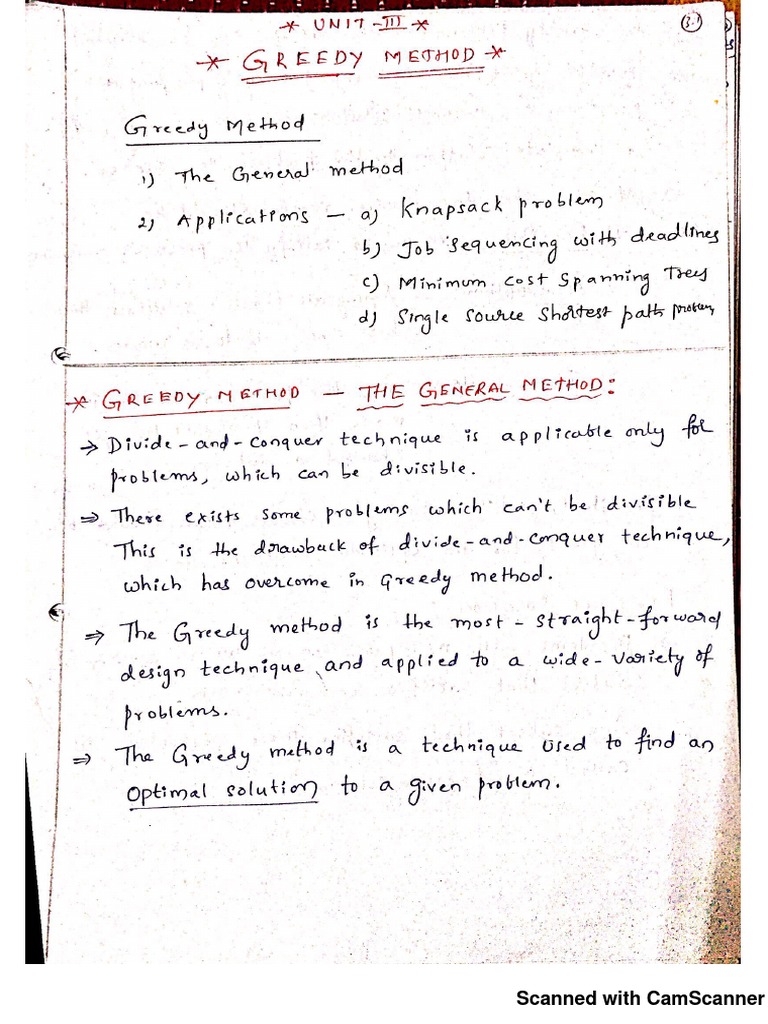 * UNIT-III *
3.1
* GREEDY METHOD *
Greedy Method
1) The General method
2) Applications — a) Knapsack problem
b) Job sequencing with deadlines
c) Minimum cost spanning Trees
d) Single source shortest path problem
* GREEDY METHOD — THE GENERAL METHOD:
→ Divide-and-conquer technique is applicable only for
problems, which can be divisible.
⇒ There exists some problems which can't be divisible
This is the drawback of divide-and-conquer technique,
which has overcome in Greedy method.
⇒ The Greedy method is the most-straight-forward
design technique and applied to a wide-variety of
problems.
⇒ The Greedy method is a technique used to find an
optimal solution to a given problem.
Scanned with CamScanner